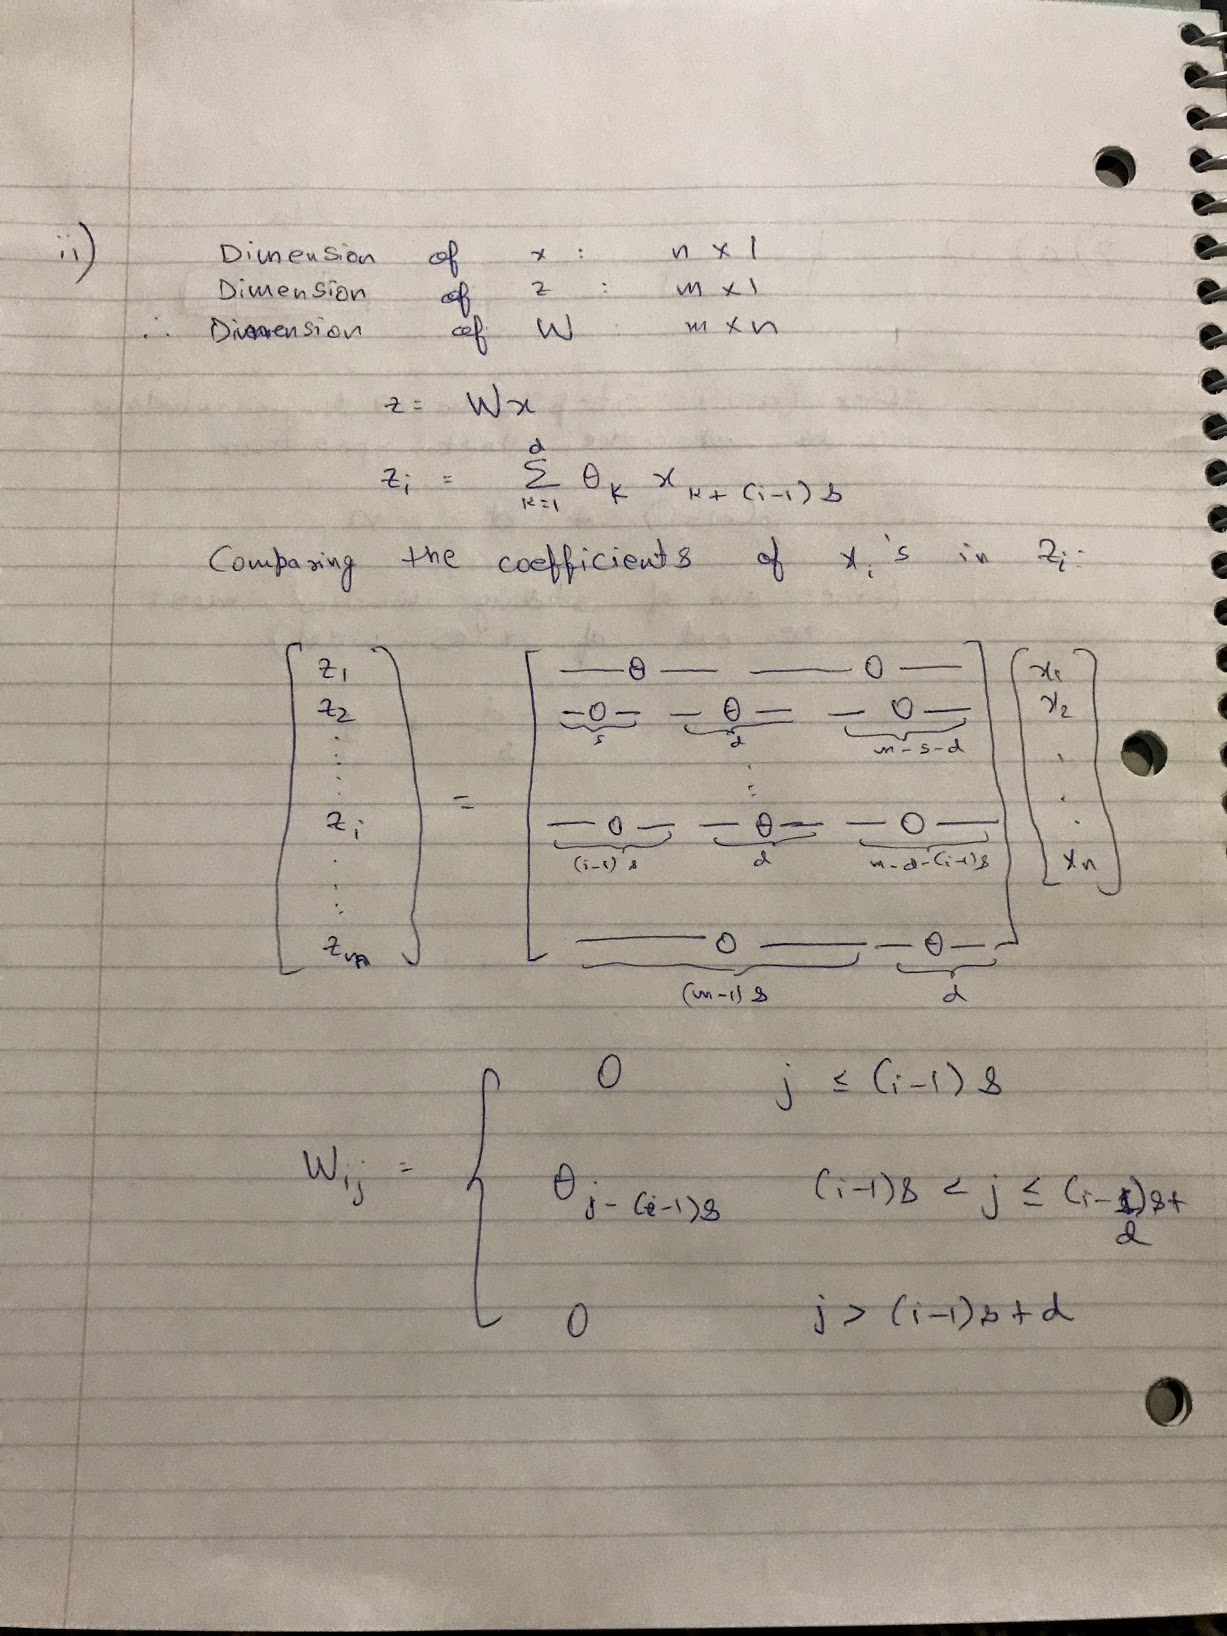 ii) Dimension of x : n × 1
Dimension of z : m × 1
∴ Dimension of W : m × n
z = Wx
z_i = Σ_{k=1}^{d} θ_k x_{k+(i-1)s}
Comparing the coefficients of x_i's in z_i:
[z_1 z_2 ⋮ z_i ⋮ z_m] = [ — θ — — 0 —
— 0 — (s) — θ — (d) — 0 — (n-s-d)
⋮
— 0 — ((i-1)s) — θ — (d) — 0 — (n-d-(i-1)s)
— 0 — ((m-1)s) — θ — (d) ] [x_1 x_2 ⋮ x_n]
W_{ij} = { 0 j ≤ (i-1)s
θ_{j-(i-1)s} (i-1)s < j ≤ (i-1)s+d
0 j > (i-1)s+d